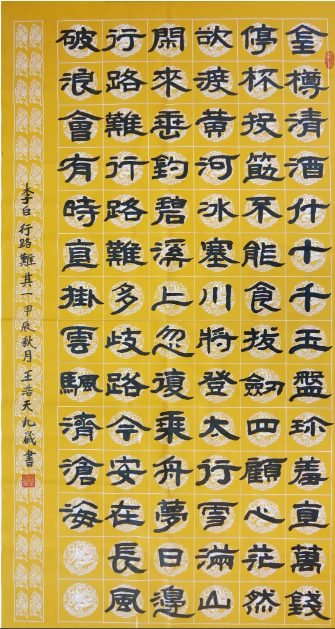 金樽清酒斗十千玉盤珍羞直萬錢
停杯投筯不能食拔劍四顧心茫然
欲渡黃河冰塞川將登太行雪滿山
閑來垂釣碧溪上忽復乘舟夢日邊
行路難行路難多歧路今安在長風
破浪會有時直掛雲颿濟滄海
李白行路難其一甲辰秋月王浩天九歲書